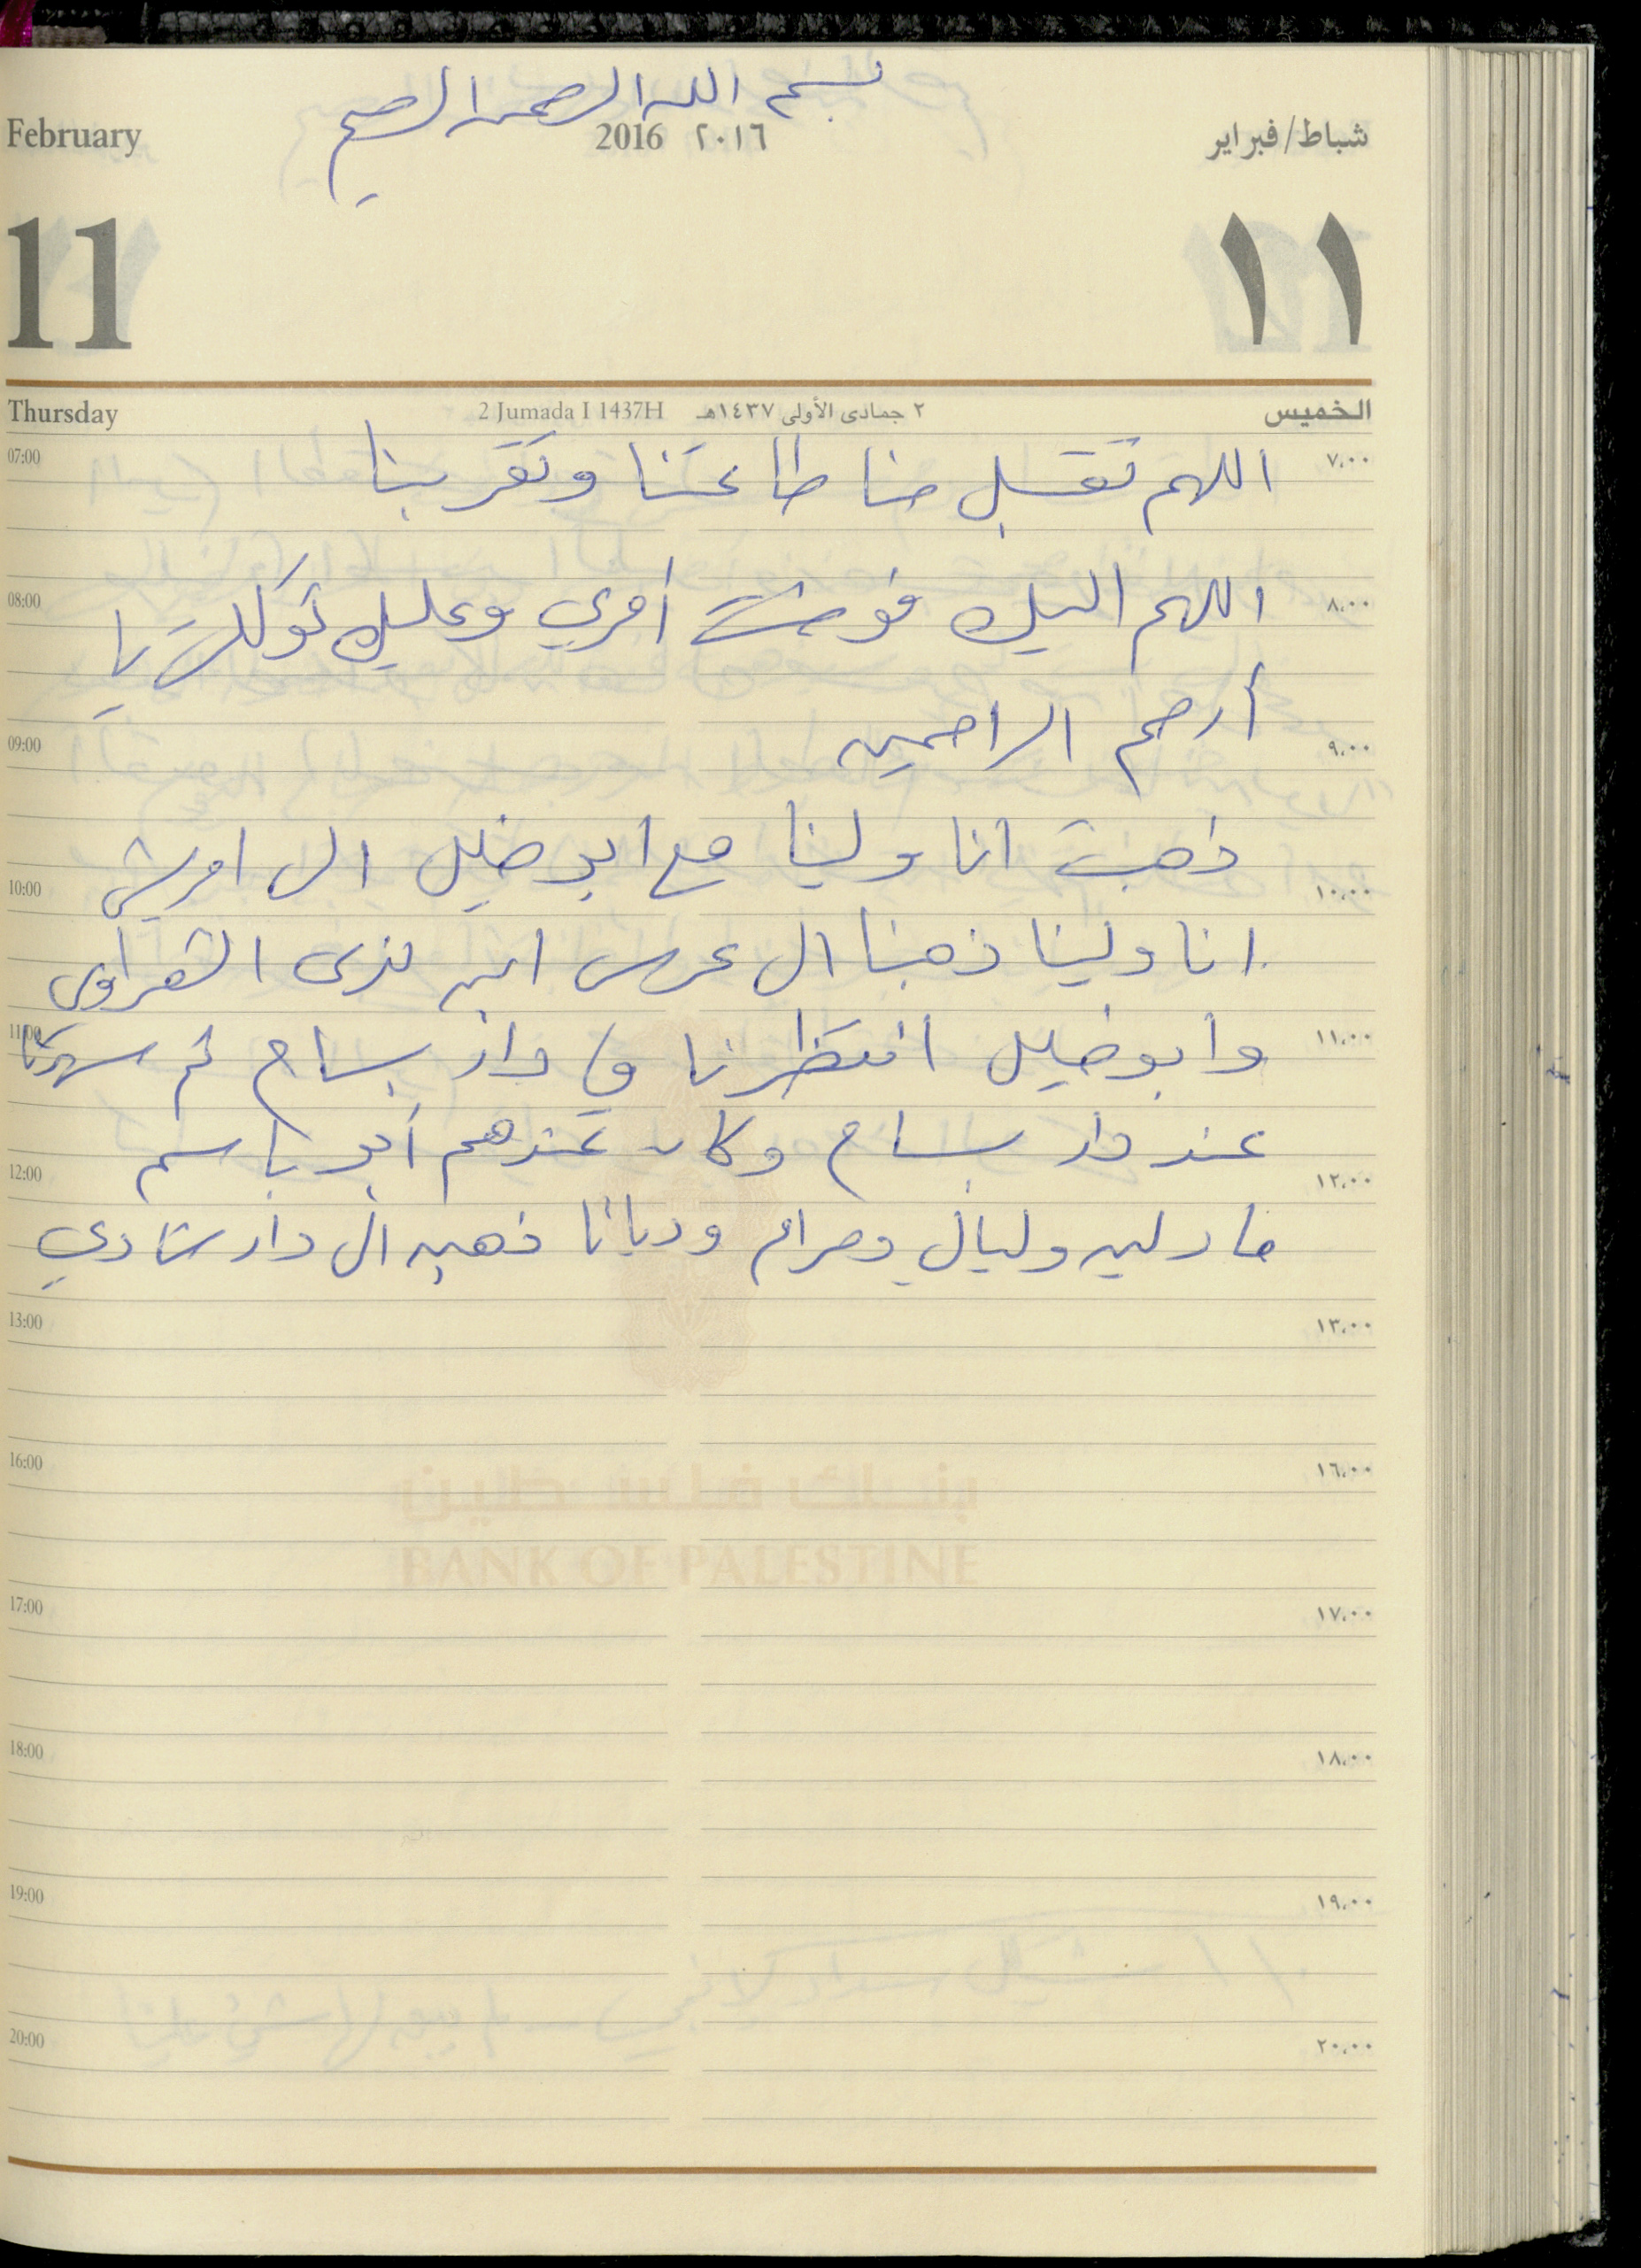 بسم الله الرحمن الرحيم
February 2016 ٢٠١٦ شباط/فبراير
11 ١١
Thursday 2 Jumada I 1437H ٢ جمادى الأولى ١٤٣٧هـ الخميس
07:00 اللهم تقبل منا طاعتنا وتقربنا ٧،٠٠
08:00 اللهم اليك فوضت أمري وعليك توكلت يا ٨،٠٠
أرحم الراحمين
09:00 ٩،٠٠
ذهبت انا ولينا مع ابو خليل الى امريش
10:00 ١٠،٠٠
انا ولينا ذهبنا الى عرس ابن الشعراوي
11:00 وأبو خليل انتظرنا في دار بسام ثم سهرنا ١١،٠٠
عند دار بسام وكان عندهم أبو باسم
12:00 ١٢،٠٠
مادلين وليالي ومرام وديانا ذهبن الى دار شادي
13:00 ١٣،٠٠
16:00 ١٦،٠٠
بنك فلسطين
BANK OF PALESTINE
17:00 ١٧،٠٠
18:00 ١٨،٠٠
19:00 ١٩،٠٠
20:00 ٢٠،٠٠